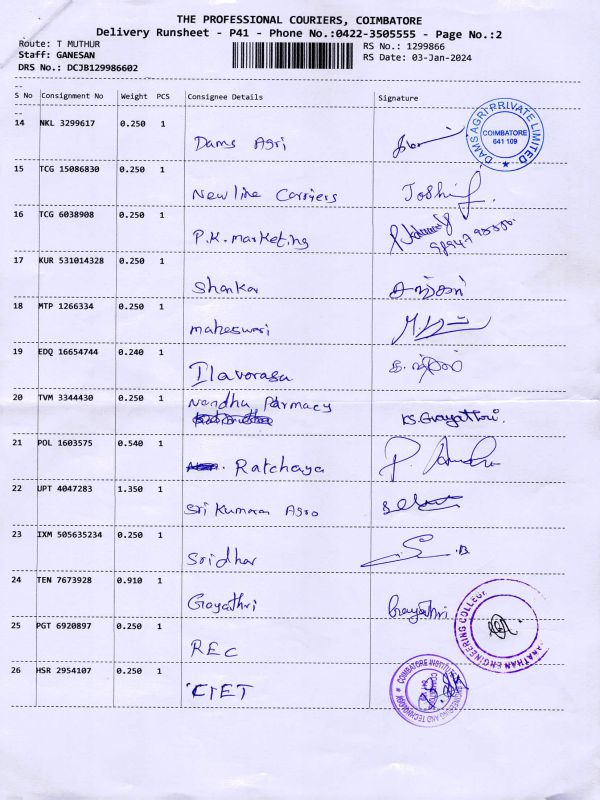 THE PROFESSIONAL COURIERS, COIMBATORE
Delivery Runsheet - P41 - Phone No.:0422-3505555 - Page No.:2
Route: T MUTHUR RS No.: 1299866
Staff: GANESAN RS Date: 03-Jan-2024
DRS No.: DCJB129986602
S No Consignment No Weight PCS Consignee Details Signature
14 NKL 3299617 0.250 1
Dams Agri
DAMS AGRI PRIVATE LIMITED
COIMBATORE
641 109
15 TCG 15086830 0.250 1
Newline Carriers Joshi
16 TCG 6038908 0.250 1
P.K. marketing
17 KUR 531014328 0.250 1
Shankar
18 MTP 1266334 0.250 1
maheswari
19 EDQ 16654744 0.240 1
Ilavarasa
20 TVM 3344430 0.250 1
Nandha Parmacy
KS. Gayathri.
21 POL 1603575 0.540 1
Ratchaya
22 UPT 4047283 1.350 1
Sri Kumaran Agro
23 IXM 505635234 0.250 1
Sridhar
24 TEN 7673928 0.910 1
Gayathri Gayathri
25 PGT 6920897 0.250 1
REC
ENGINEERING COLLEGE
26 HSR 2954107 0.250 1
CIET
COIMBATORE INSTITUTE ENGINEERING AND TECHNOLOGY